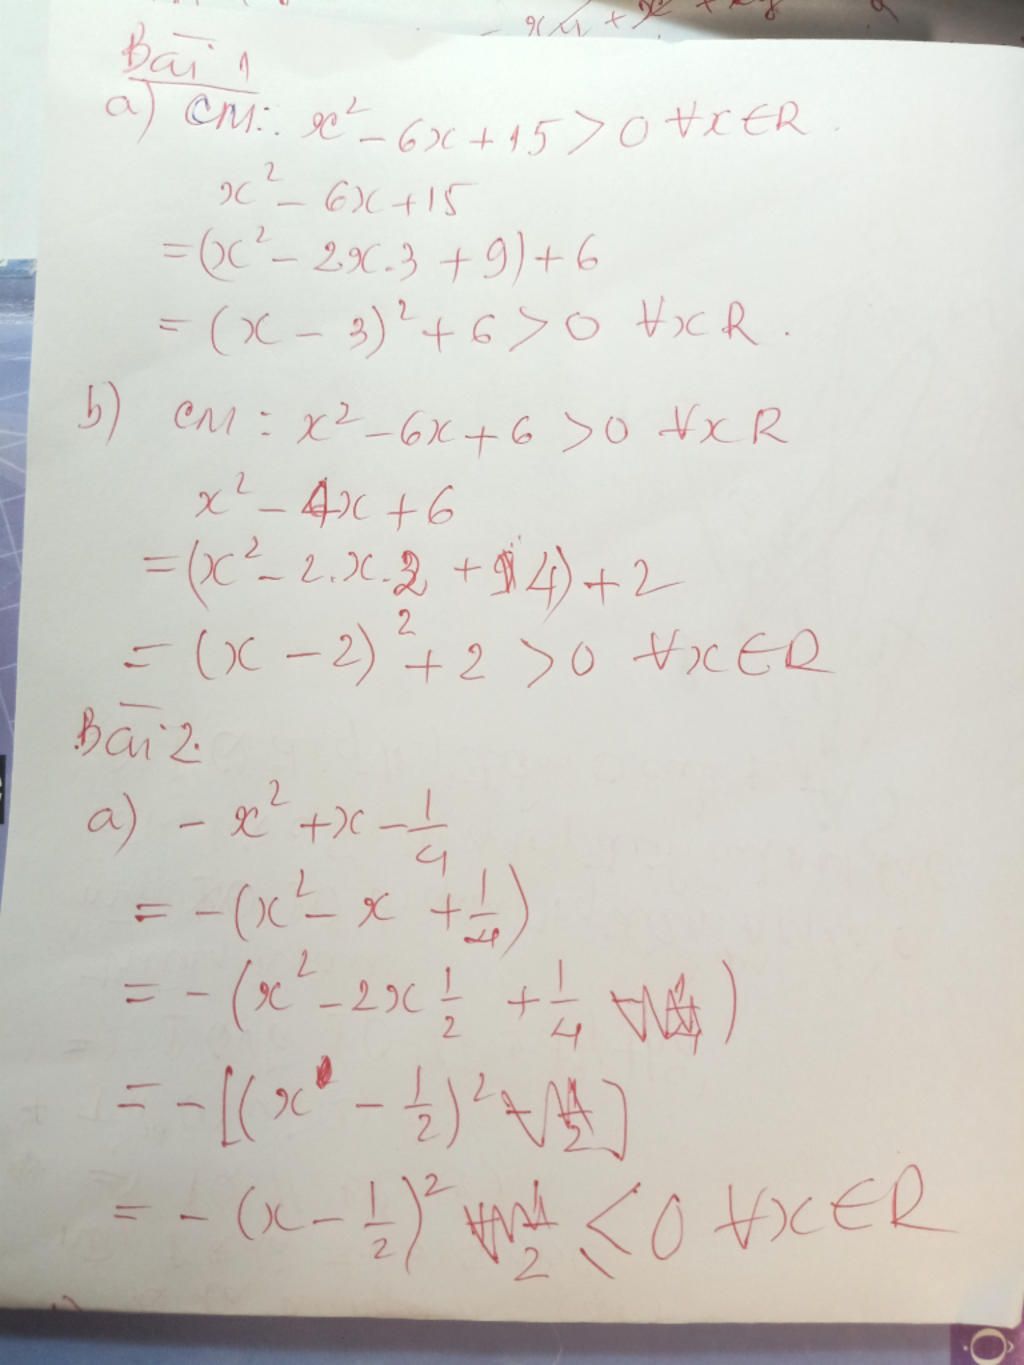 Bài 1
a) CM: x² - 6x + 15 > 0 ∀x∈R.
x² - 6x + 15
= (x² - 2x.3 + 9) + 6
= (x - 3)² + 6 > 0 ∀x R.
b) CM: x² - 6x + 6 > 0 ∀x R
x² - 4x + 6
= (x² - 2.x.2 + 4) + 2
= (x - 2)² + 2 > 0 ∀x∈R
Bài 2.
a) - x² + x - 1/4
= - (x² - x + 1/4)
= - (x² - 2x 1/2 + 1/4)
= - [(x - 1/2)²]
= - (x - 1/2)² ≤ 0 ∀x∈R